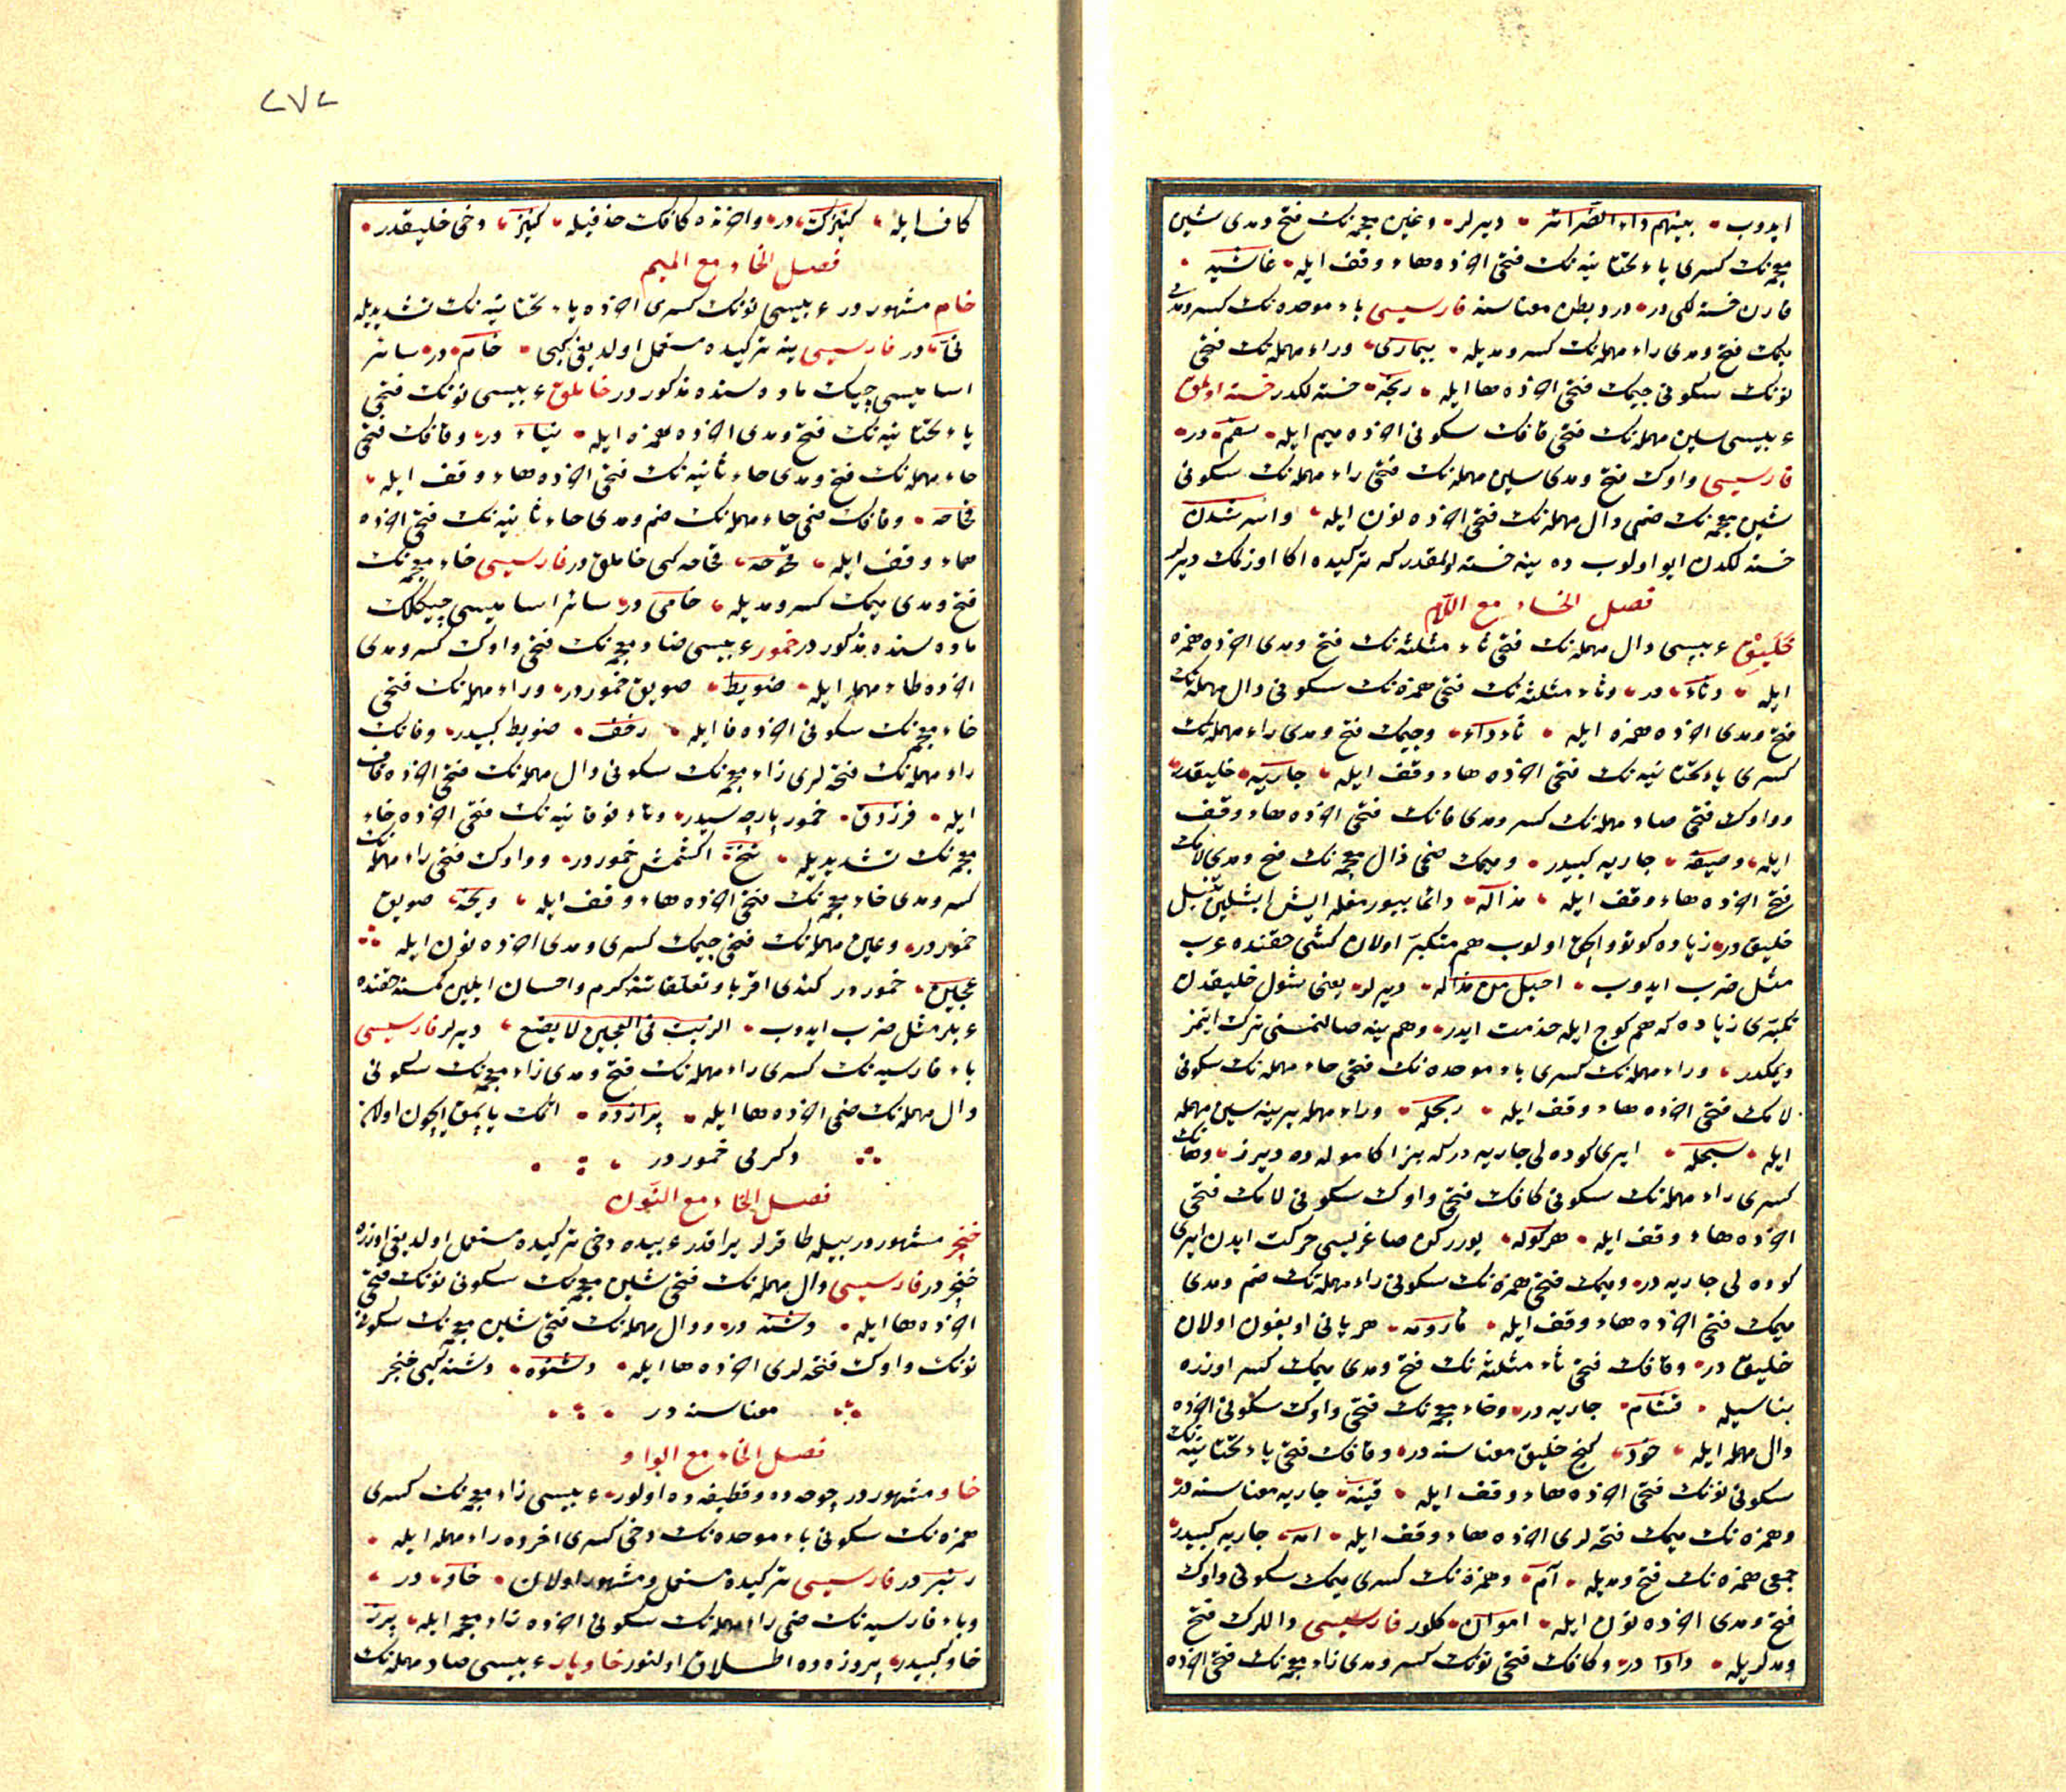 ایدوب بینهم داء الضرائر دیرلر وغین معجمه‌نك فتح ومدی شین
معجمه‌نك كسری یاء تحتانیه‌نك فتحی آخرده هاء وقف ایله غاشیه
قارن خسته‌لكی‌در ودرد بطن معناسنه فارسیسی باء موحده‌نك كسر ومدی
میمك فتح ومدی راء مهمله‌نك كسر ومدیله بیماری وراء مهمله‌نك فتحی
نونك سكونی جیمك فتحی آخرده ها ایله رنجه خسته‌لكدر خسته اولمق
عربیسی سین مهمله‌نك فتحی قافك سكونی آخرده میم ایله سقم در
فارسیسی واوك فتح ومدی سین مهمله‌نك فتحی راء مهمله‌نك سكونی
شین معجمه‌نك ضمی دال مهمله‌نك فتحی آخرده نون ایله واسرشدن
خسته‌لكدن ایو اولوب ده ینه خسته اولمقدر كه تركیده اكا اوزنمك دیرلر
فصل الخاء مع اللام
خلیق عربیسی دال مهمله‌نك فتحی ثاء مثلثه‌نك فتح ومدی آخرده همزه
ایله دثاء در وثاء مثلثه‌نك فتحی همزه‌نك سكونی دال مهمله‌نك
فتح ومدی آخرده همزه ایله ثأداء وجیمك فتح ومدی راء مهمله‌نك
كسری یاء تحتانیه‌نك فتحی آخرده هاء وقف ایله جاریه خلیقدر
وواوك فتحی صاد مهمله‌نك كسر ومدی فانك فتحی آخرده هاء وقف
ایله وصیفه جاریه كبیدر ومیمك ضمی ذال معجمه‌نك فتح ومدی لامك
فتحی آخرده هاء وقف ایله مذاله دائما
خلیق در زیاده كوتو اولوب هم متكبر اولان كشی حقنده عرب
مثل ضرب ایدوب اخیل من مذاله دیرلر یعنی شول خلیقدن
تكبری زیاده كه هم كوج ایله خدمت ایدر وهم ینه صالنمسنی ترك ایتمز
دیمكدر وراء مهمله‌نك كسری باء موحده‌نك فتحی حاء مهمله‌نك سكونی
لامك فتحی آخرده هاء وقف ایله ربحله وراء مهمله یرینه سین مهمله
ایله سبحله ایری كوده‌لی جاریه در كه بزاكا موله‌ده دیرز وهانك
كسری راء مهمله‌نك سكونی كافك فتحی واوك سكونی لامك فتحی
آخرده هاء وقف ایله هركوله یورركن صاغریسی حركت ایدن ایری
كوده‌لی جاریه در ومیمك فتحی همزه‌نك سكونی راء مهمله‌نك ضم ومدی
میمك فتحی آخرده هاء وقف ایله مأرومه هر یانی اویغون اولان
خلیق در وقافك فتحی ثاء مثلثه‌نك فتح ومدی میمك كسر اوزره
بناسیله قثام جاریه در وخاء معجمه‌نك فتحی واوك سكونی آخرده
دال مهمله ایله خود كنج خلیق معناسنه در وقافك فتحی یاء تحتانیه‌نك
سكونی نونك فتحی آخرده هاء وقف ایله قینه جاریه معناسنه در
وهمزه‌نك میمك فتحه‌لری آخرده هاء وقف ایله امه جاریه كبیدر
جمعی همزه‌نك فتح ومدیله آم وهمزه‌نك كسری میمك سكونی واوك
فتح ومدی آخرده نون ایله اموان كلور فارسیسی داللرك فتح
ومدلریله دادا در وكافك فتحی نونك كسر ومدی زاء معجمه‌نك فتحی آخرده
٢٧٢
كاف ایله كنیزك در وآخرنده كافك حذفیله كنیز دخی خلیقدر
فصل الخاء مع المیم
خام مشهوردر عربیسی نونك كسری آخرده یاء تحتانیه‌نك تشدیدیله
نیّ در فارسیسی ینه تركیده مستعمل اولدیغی كبی خام در سائر
اسامیسی چیك ماده‌سنده مذكوردر خاملق عربیسی نونك فتحی
یاء تحتانیه‌نك فتح ومدی آخرده همزه ایله نیاء در وقافك فتحی
حاء مهمله‌نك فتح ومدی حاء ثانیه‌نك فتحی آخرده هاء وقف ایله
قحاحه وقافك ضمی حاء مهمله‌نك ضم ومدی حاء ثانیه‌نك فتحی آخرده
هاء وقف ایله قحوحه قحاحه كبی خاملق در فارسیسی خاء معجمه‌نك
فتح ومدی میمك كسر ومدیله خامی در سائر اسامیسی چیكلك
ماده‌سنده مذكوردر خمور عربیسی ضاد معجمه‌نك فتحی واوك كسر ومدی
آخرده طاء مهمله ایله ضویط صویق خموردر وراء مهمله‌نك فتحی
خاء معجمه‌نك سكونی آخرده فا ایله رخف ضویط كبیدر وفانك
راء مهمله‌نك فتحه‌لری زاء معجمه‌نك سكونی دال مهمله‌نك فتحی آخرده قاف
ایله فرزدق خمور پارچه‌سیدر وتاء فوقانیه‌نك فتحی آخرده خاء
معجمه‌نك تشدیدیله تخ اكشمش خموردر وواوك فتحی راء مهمله‌نك
كسر ومدی خاء معجمه‌نك فتحی آخرده هاء وقف ایله وریخه صویق
خموردر وعین مهمله‌نك فتحی جیمك كسری ومدی آخرده نون ایله
عجین خموردر كندی اقربا وتعلقاتنه كرم واحسان ایلین كمسنه حقنده
عربلر مثل ضرب ایدوب الزیت فی العجین لا یضیع دیرلر فارسیسی
باء فارسیه‌نك كسری راء مهمله‌نك فتح ومدی زاء معجمه‌نك سكونی
دال مهمله‌نك ضمی آخرده ها ایله پرازده اتمك یاپمق ایچون اولان
دكرمی خموردر
فصل الخاء مع النون
خنجر مشهوردر بیله طاقرلر بر آقدر عربیده دخی تركیده مستعمل اولدیغی اوزره
خنجر در فارسیسی دال مهمله‌نك فتحی شین معجمه‌نك سكونی نونك فتحی
آخرده ها ایله دشنه در ودال مهمله‌نك فتحی شین معجمه‌نك سكونی
نونك واوك فتحه‌لری آخرده ها ایله دشنوه دشنه كبی خنجر
معناسنه در
فصل الخاء مع الواو
خاو مشهوردر چوخه‌ده وقطیفه‌ده اولور عربیسی زاء معجمه‌نك كسری
همزه‌نك سكونی باء موحده‌نك دخی كسری آخرده راء مهمله ایله
زئبر در فارسیسی تركیده مستعمل ومشهور اولان خاو در
وباء فارسیه‌نك ضمی راء مهمله‌نك سكونی آخرده زاء معجمه ایله پرز
خاو كبیدر پروزه‌ده اطلاق اولنور خاویار عربیسی صاد مهمله‌نك